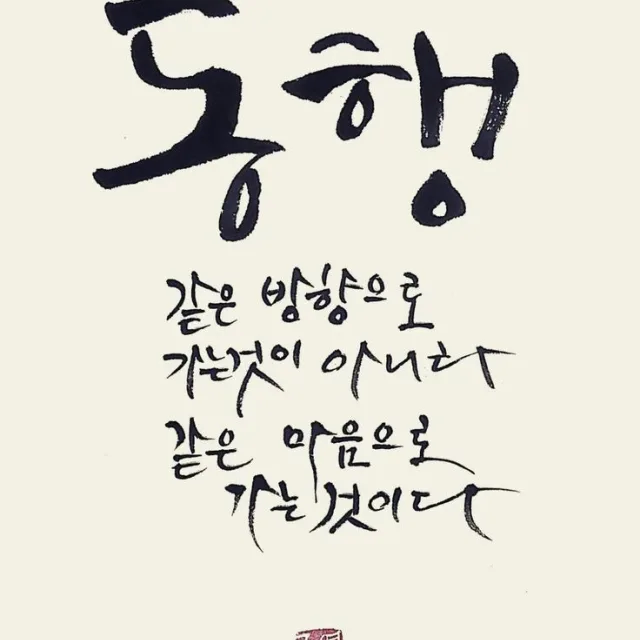 동행
같은 방향으로
가는것이 아니라
같은 마음으로
가는 것이다